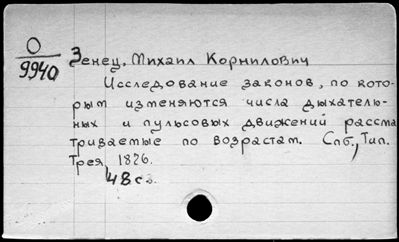 О
9940
Зенец, Михаил Корнилович
Исследование законов, по кото-
рым изменяются числа дыхатель-
ных и пульсовых движений рассма
триваемые по возрастам. Спб., Тип.
Трея, 1876.
48 с.